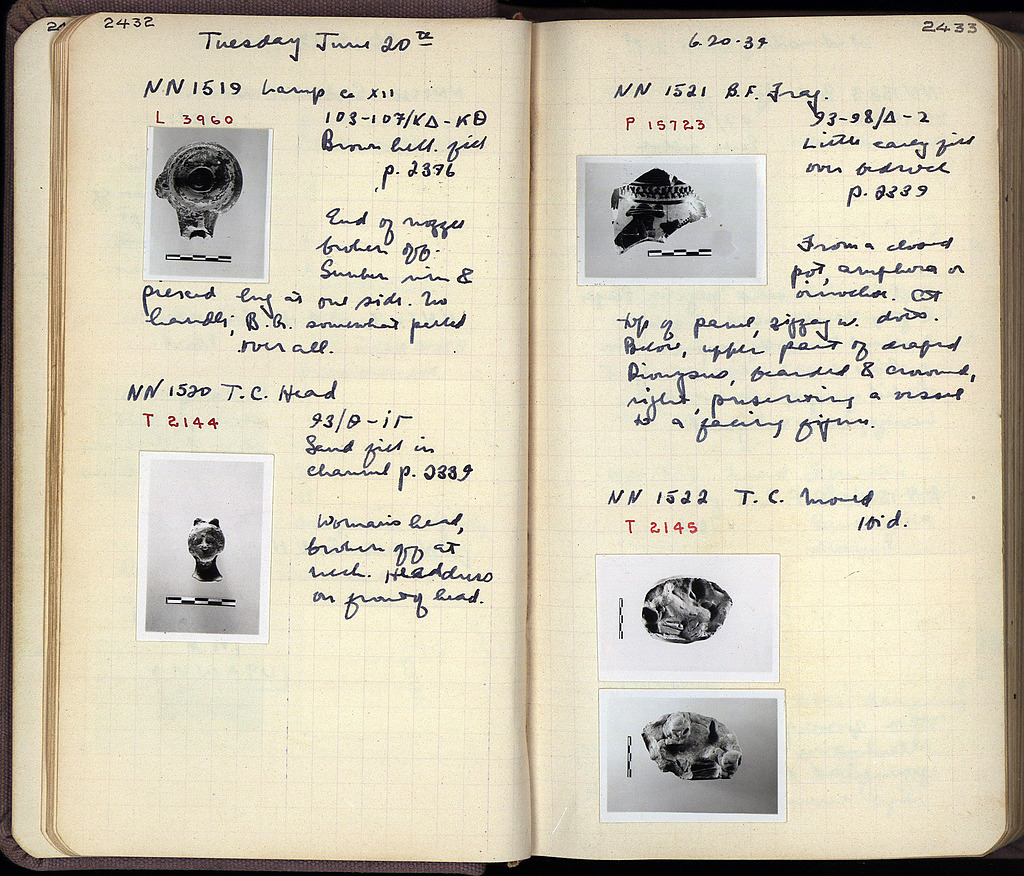 2432
Tuesday June 20th
NN 1519 Lamp c XII
L 3960
103-107/ΚΔ-ΚΘ
Brown hell. fill
p. 2376
End of nozzle
broken off.
Sunken rim &
pierced lug at one side. No
handle; B.G. somewhat peeled
over all.
NN 1520 T.C. Head
T 2144
93/Θ-ΙΓ
Sand fill in
channel p. 2339
Woman's head,
broken off at
neck. Headdress
on front of head.
2433
6.20.39
NN 1521 B.F. Frag.
P 15723
93-98/Δ-2
Little early fill
over bedrock
p. 2339
From a closed
pot, amphora or
oinochoe. At
top of panel, zigzag w. dots.
Below, upper part of draped
Dionysus, bearded & crowned,
right, presenting a vessel
to a facing figure.
NN 1522 T.C. Mould
T 2145
Ibid.